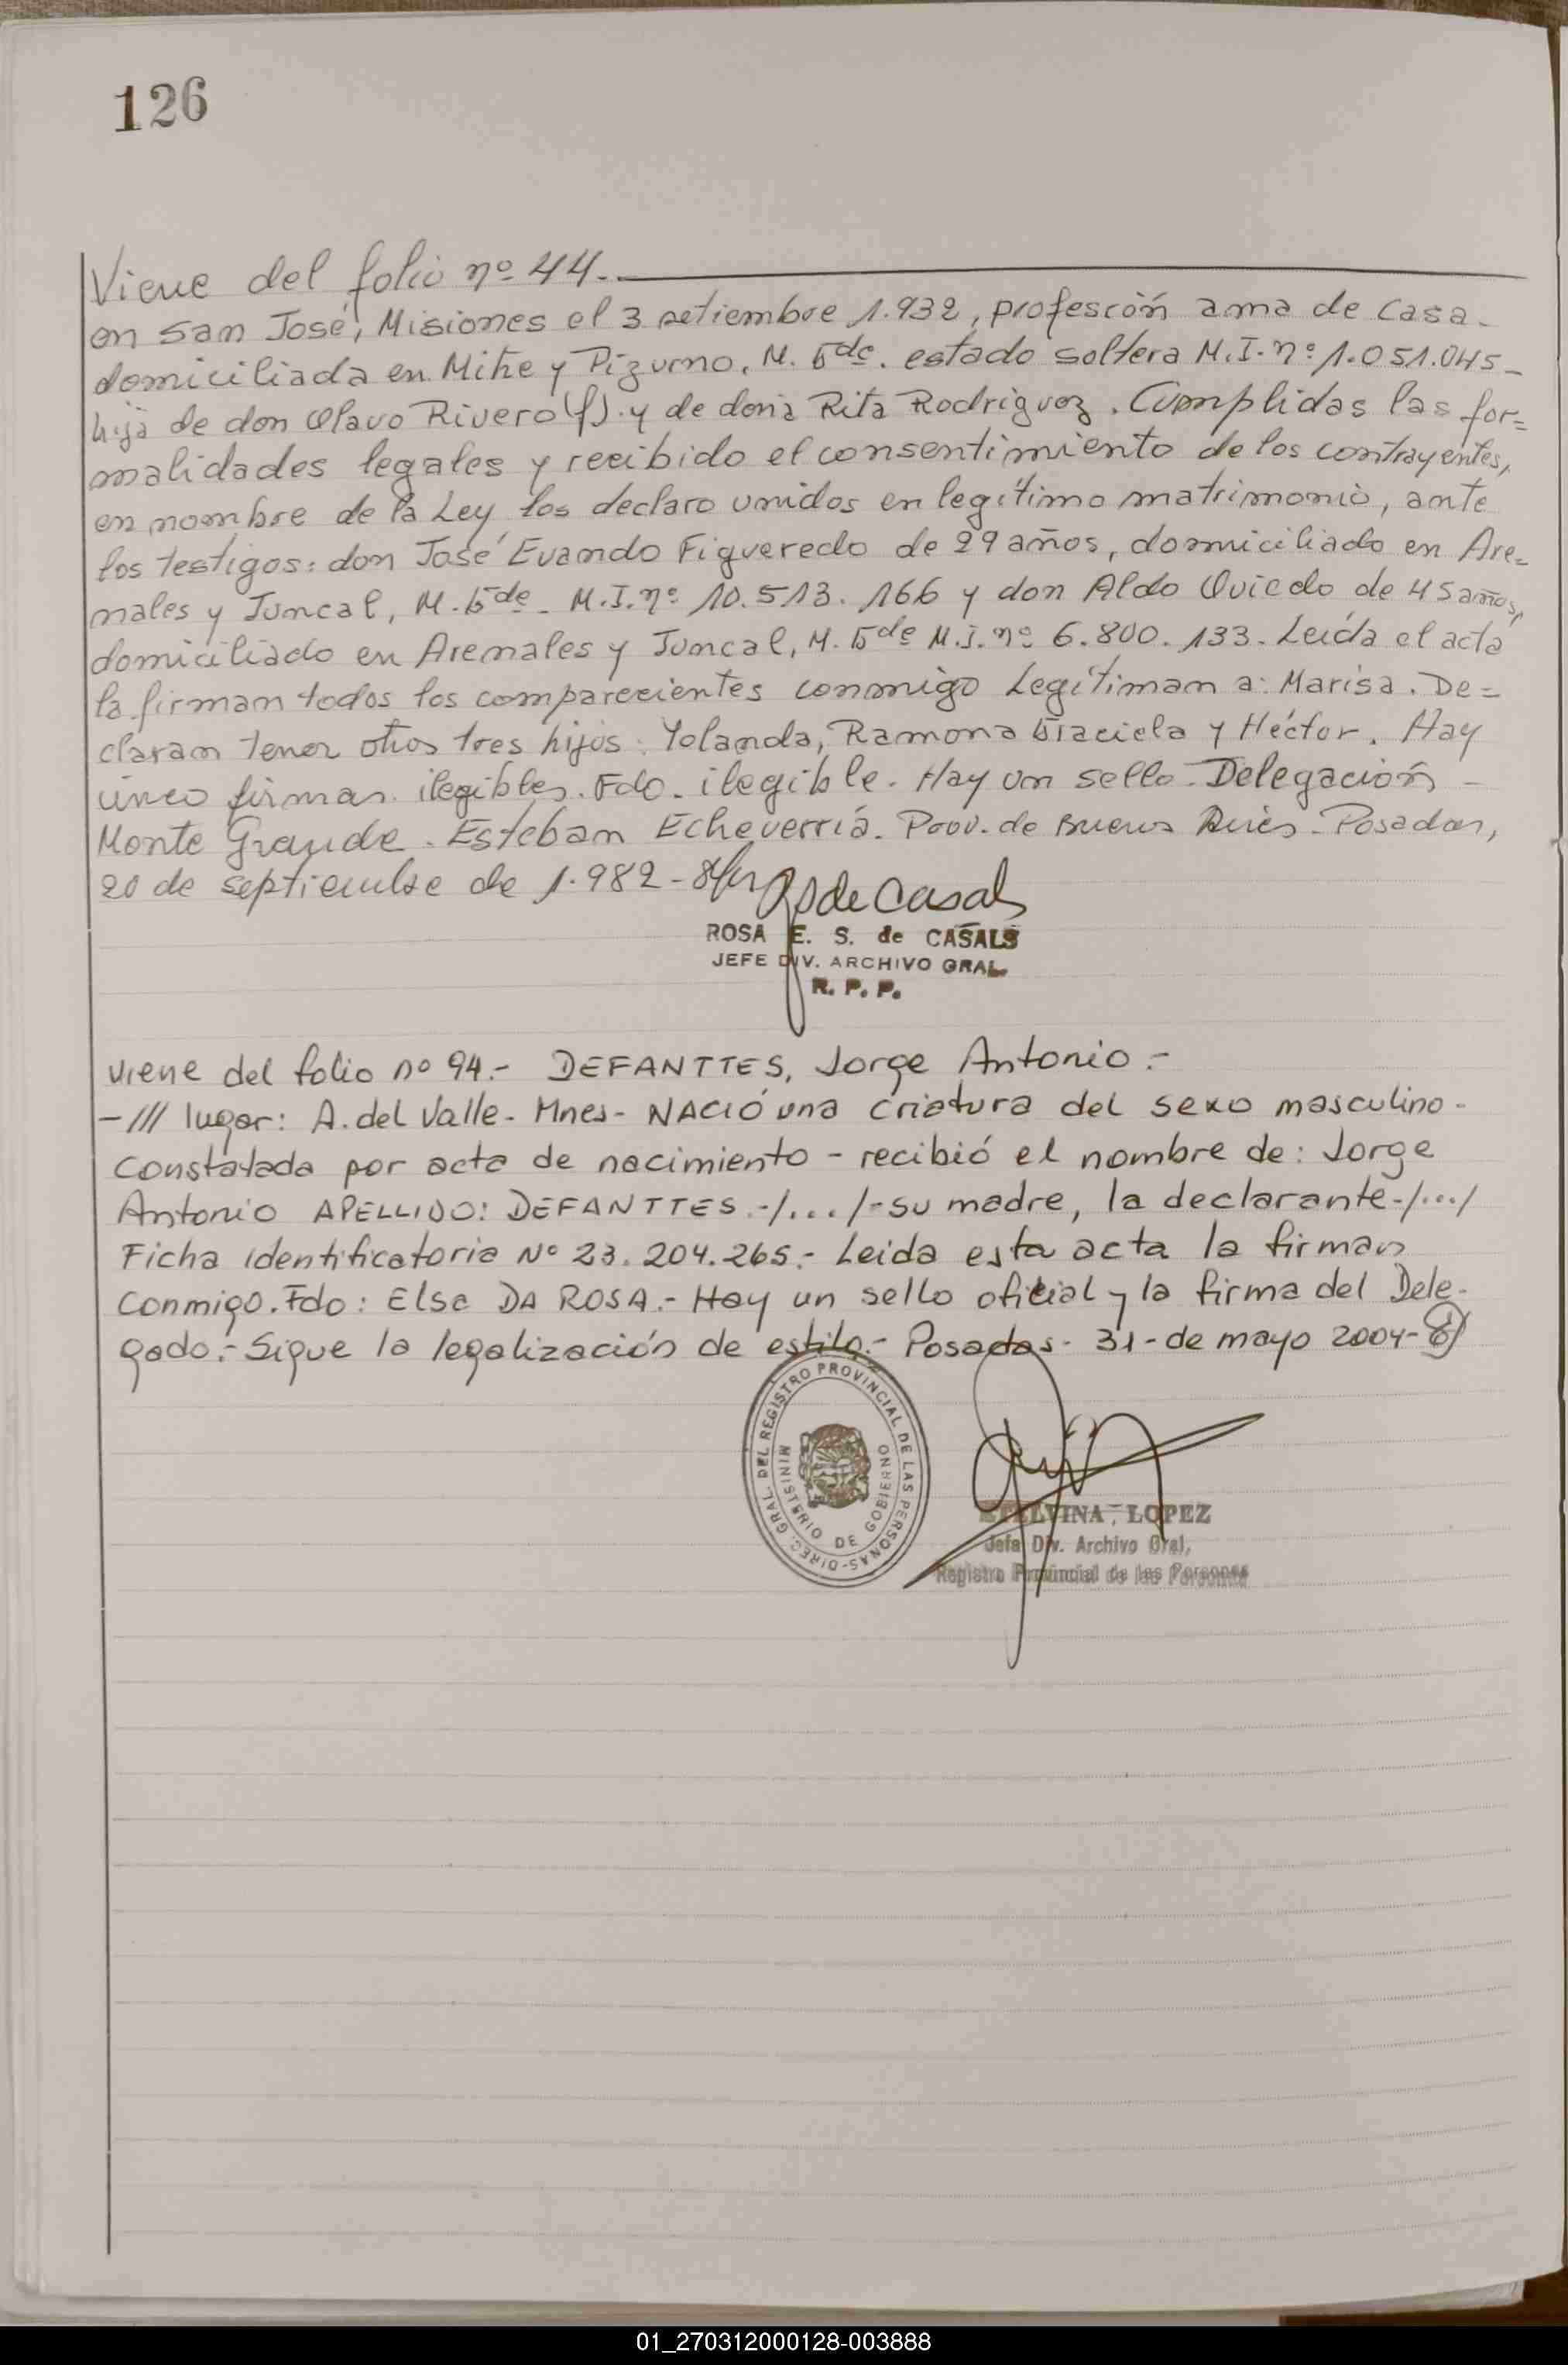 126
Viene del folio nº 44.-
en San José, Misiones el 3 setiembre 1.932, profesión ama de casa-
domiciliada en Mitre y Pizurno, M. Gde. estado soltera M.I. nº 1.051.045-
hija de don Olavo Rivero (f). y de doña Rita Rodriguez. Cumplidas las for=
malidades legales y recibido el consentimiento de los contrayentes,
en nombre de la Ley, los declaro unidos en legítimo matrimonio, ante
los testigos: don José Evando Figueredo de 29 años, domiciliado en Are=
nales y Juncal, M. Gde. M.I. nº 10.513.166 y don Aldo Oviedo de 45 años,
domiciliado en Arenales y Juncal, M. Gde M.I. nº 6.800.133. Leída el acta
la firman todos los comparecientes conmigo Legítiman a: Marisa. De=
claran tener otros tres hijos: Yolanda, Ramona Graciela y Héctor. Hay
cinco firmas ilegibles. Fdo. ilegible. Hay un sello. Delegación -
Monte Grande. Esteban Echeverría. Prov. de Buenos Aires - Posadas,
20 de septiembre de 1.982-
de Casals
ROSA E. S. de CASALS
JEFE DIV. ARCHIVO GRAL.
R. P. P.
viene del folio nº 94.- DEFANTTES, Jorge Antonio.-
-/// lugar: A. del Valle- Mnes- NACIÓ una criatura del sexo masculino-
Constatada por acta de nacimiento - recibió el nombre de: Jorge
Antonio APELLIDO: DEFANTTES.-/.../-su madre, la declarante-/.../
Ficha identificatoria Nº 23.204.265.- Leida esta acta la firman
conmigo. Fdo: Elsa DA ROSA.- Hay un sello oficial y la firma del Dele-
gado.- Sigue la legalización de estilo.- Posadas- 31- de mayo 2004-
DIREC. GRAL. DEL REGISTRO PROVINCIAL DE LAS PERSONAS
MINISTERIO DE GOBIERNO
ETELVINA LOPEZ
Jefa Div. Archivo Gral.
Registro Provincial de las Personas
01_270312000128-003888